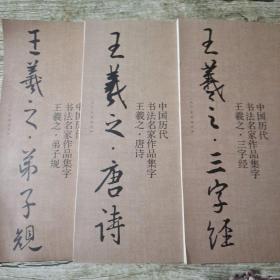 王羲之·弟子规
中国历代
书法名家作品集字
王羲之·弟子规
王羲之·唐诗
中国历代
书法名家作品集字
王羲之·唐诗
王羲之·三字经
中国历代
书法名家作品集字
王羲之·三字经